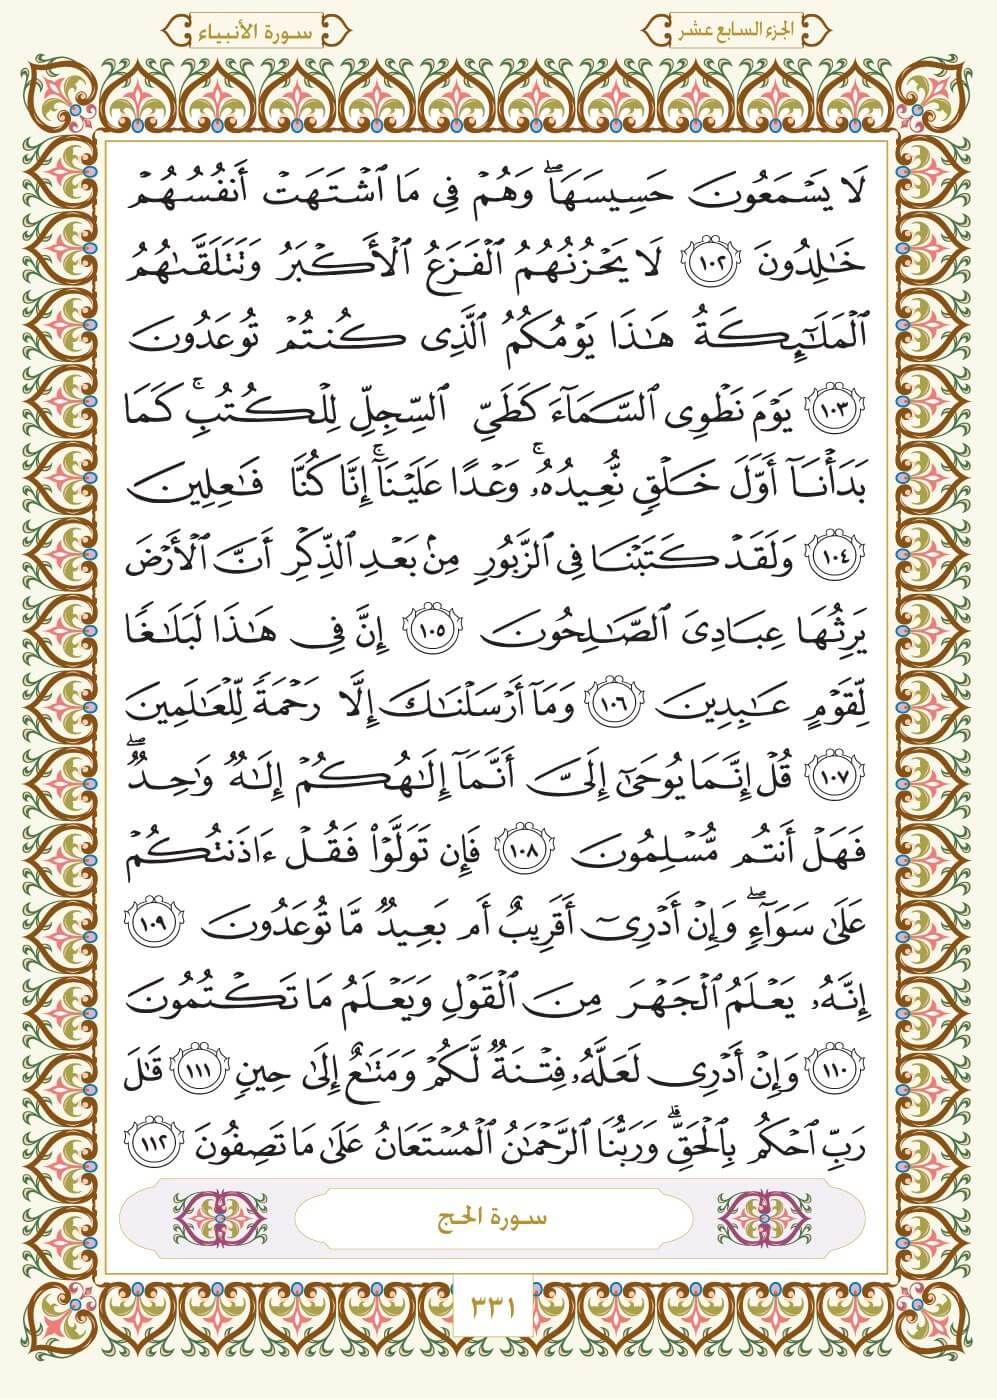 الجزء السابع عشر
سورة الأنبياء
لَا يَسْمَعُونَ حَسِيسَهَا ۖ وَهُمْ فِي مَا ٱشْتَهَتْ أَنفُسُهُمْ
خَٰلِدُونَ ١٠٢ لَا يَحْزُنُهُمُ ٱلْفَزَعُ ٱلْأَكْبَرُ وَتَتَلَقَّىٰهُمُ
ٱلْمَلَٰٓئِكَةُ هَٰذَا يَوْمُكُمُ ٱلَّذِى كُنتُمْ تُوعَدُونَ
١٠٣ يَوْمَ نَطْوِى ٱلسَّمَآءَ كَطَىِّ ٱلسِّجِلِّ لِلْكُتُبِ ۚ كَمَا
بَدَأْنَآ أَوَّلَ خَلْقٍ نُّعِيدُهُۥ ۚ وَعْدًا عَلَيْنَآ ۚ إِنَّا كُنَّا فَٰعِلِينَ
١٠٤ وَلَقَدْ كَتَبْنَا فِى ٱلزَّبُورِ مِنۢ بَعْدِ ٱلذِّكْرِ أَنَّ ٱلْأَرْضَ
يَرِثُهَا عِبَادِىَ ٱلصَّٰلِحُونَ ١٠٥ إِنَّ فِى هَٰذَا لَبَلَٰغًا
لِّقَوْمٍ عَٰبِدِينَ ١٠٦ وَمَآ أَرْسَلْنَٰكَ إِلَّا رَحْمَةً لِّلْعَٰلَمِينَ
١٠٧ قُلْ إِنَّمَا يُوحَىٰٓ إِلَىَّ أَنَّمَآ إِلَٰهُكُمْ إِلَٰهٌ وَٰحِدٌ ۖ
فَهَلْ أَنتُم مُّسْلِمُونَ ١٠٨ فَإِن تَوَلَّوْا۟ فَقُلْ ءَاذَنتُكُمْ
عَلَىٰ سَوَآءٍ ۖ وَإِنْ أَدْرِىٓ أَقَرِيبٌ أَم بَعِيدٌ مَّا تُوعَدُونَ ١٠٩
إِنَّهُۥ يَعْلَمُ ٱلْجَهْرَ مِنَ ٱلْقَوْلِ وَيَعْلَمُ مَا تَكْتُمُونَ
١١٠ وَإِنْ أَدْرِى لَعَلَّهُۥ فِتْنَةٌ لَّكُمْ وَمَتَٰعٌ إِلَىٰ حِينٍ ١١١ قَٰلَ
رَبِّ ٱحْكُم بِٱلْحَقِّ ۗ وَرَبُّنَا ٱلرَّحْمَٰنُ ٱلْمُسْتَعَانُ عَلَىٰ مَا تَصِفُونَ ١١٢
سورة الحج
٣٣١